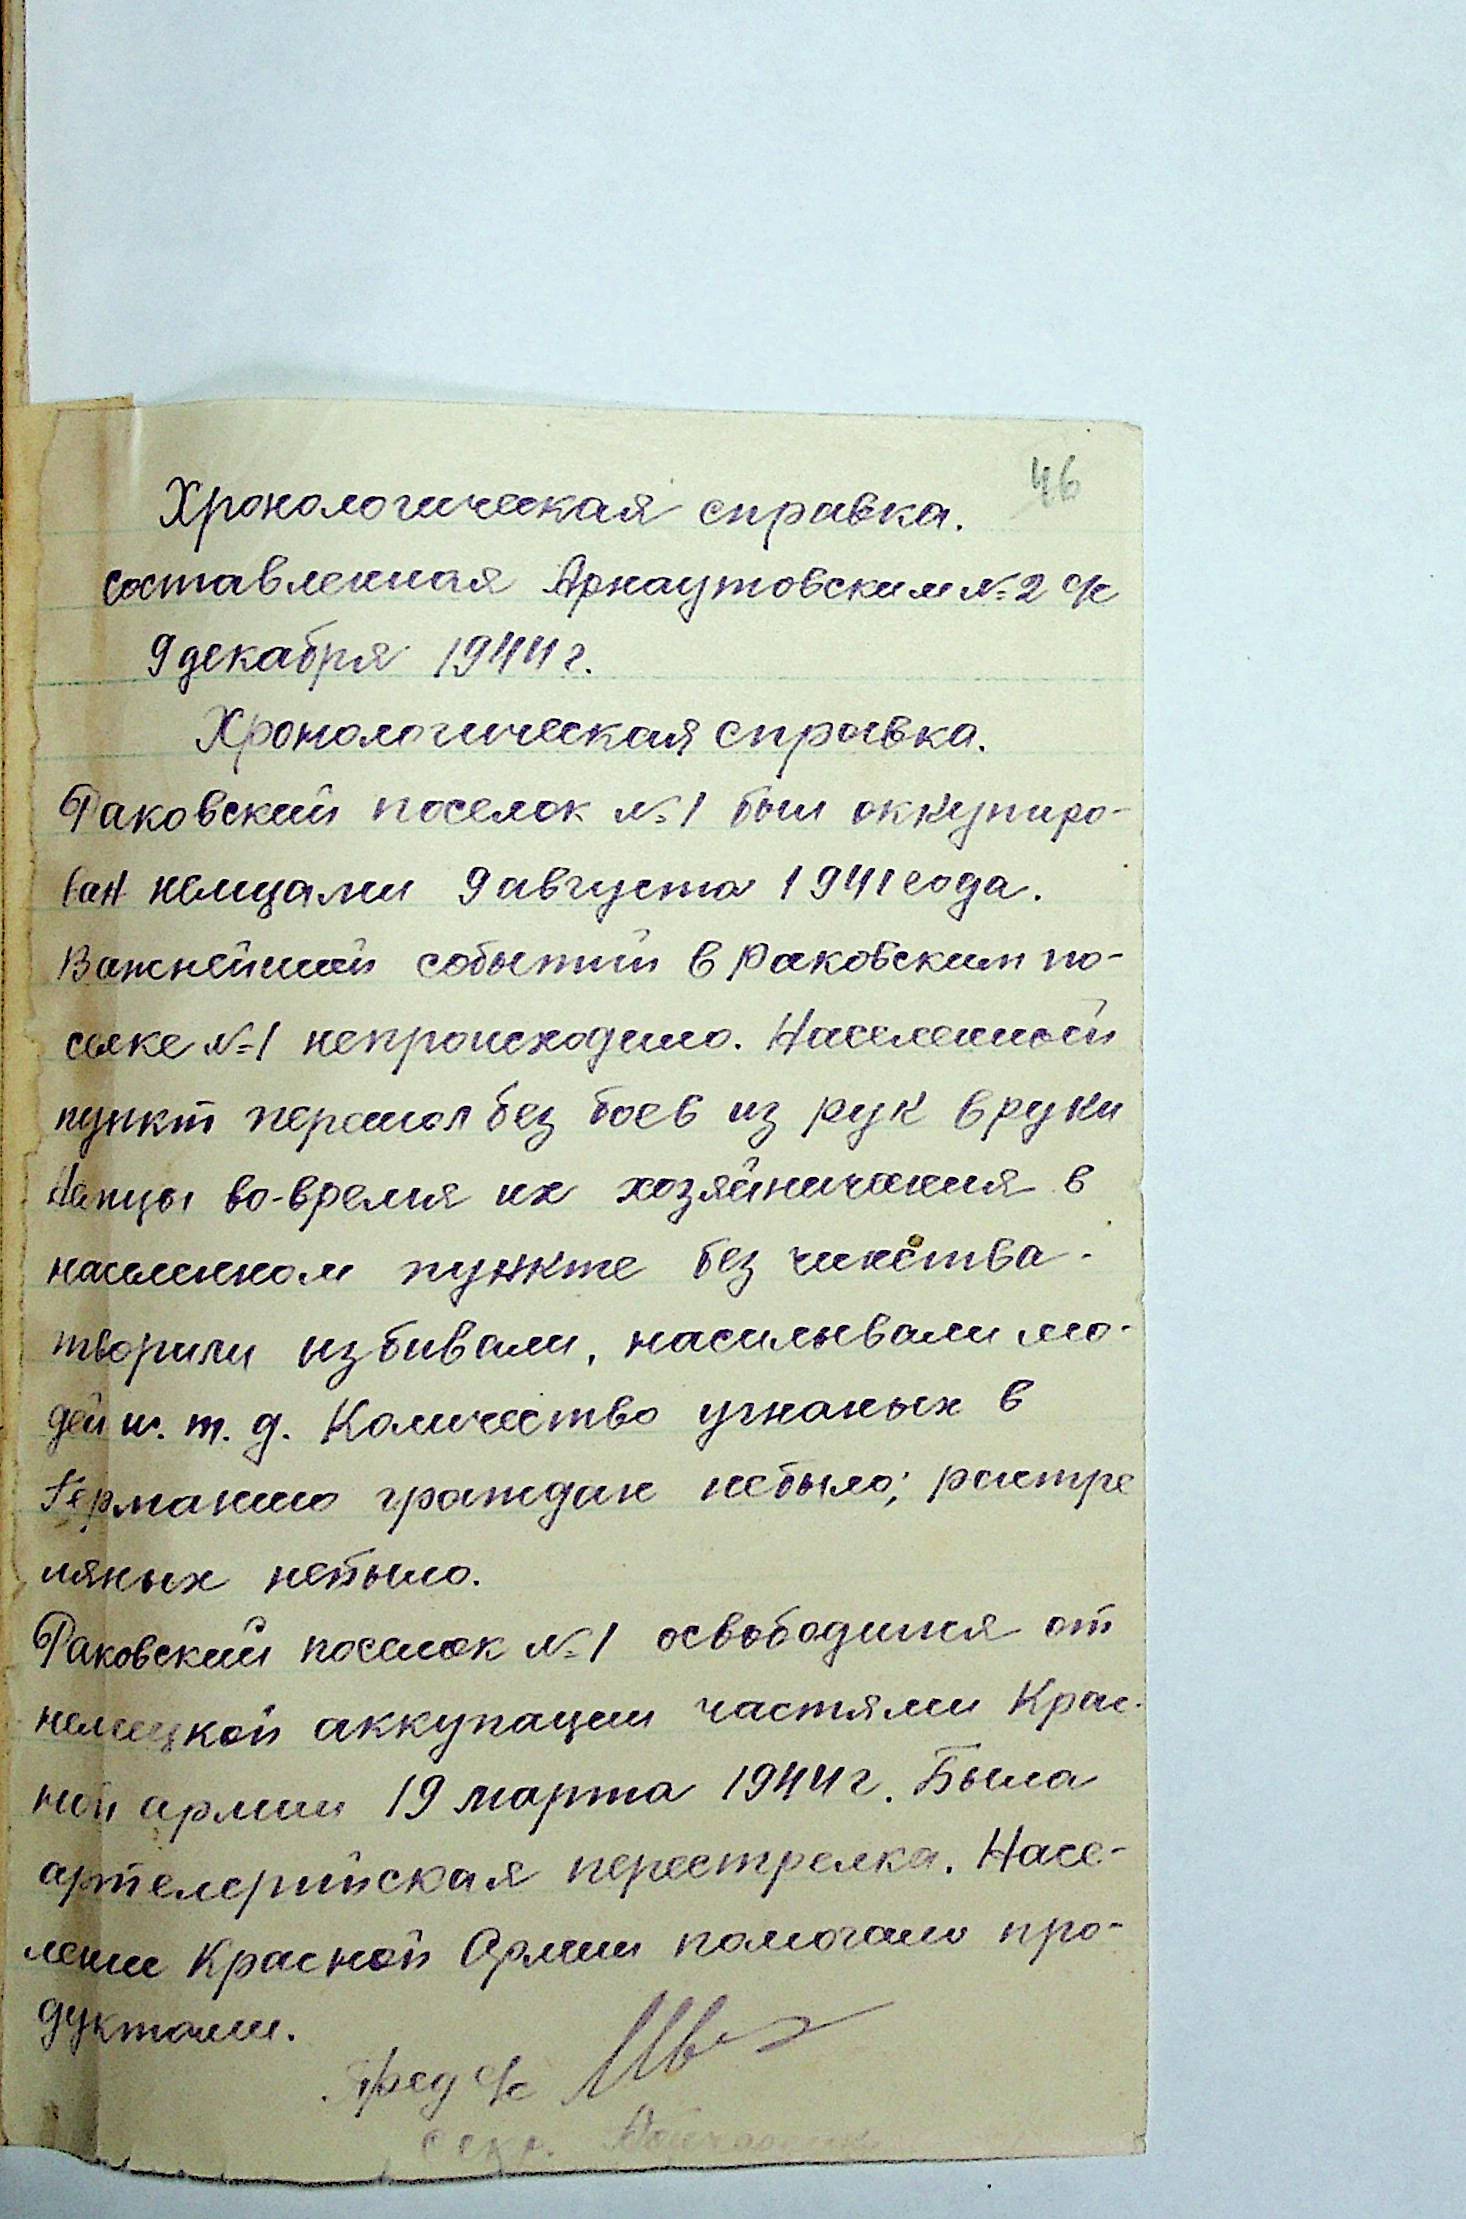 46
Хронологическая справка.
составленная Арнаутовским №2 с/с
9 декабря 1944 г.
Хронологическая справка.
Раковский поселок №1 был оккупиро-
ван немцами 9 августа 1941 года.
Важнейшей событий в Раковским по-
селке №1 непроисходило. Населенный
пункт перешол без боев из рук в руки
Немцы во-время их хозяйничения в
населенном пункте без чинства
творили избивали, насилывали лю-
дей и. т. д. Количество угнаных в
Германию граждан небыло; растре
ляных небыло.
Раковский поселок №1 освободился от
немецкой аккупации частями Крас-
ной армии 19 марта 1944 г. Была
артелерийская перестрелка. Насе-
лении Красной Армии помогало про-
дуктами.
Пред с/с
секр.